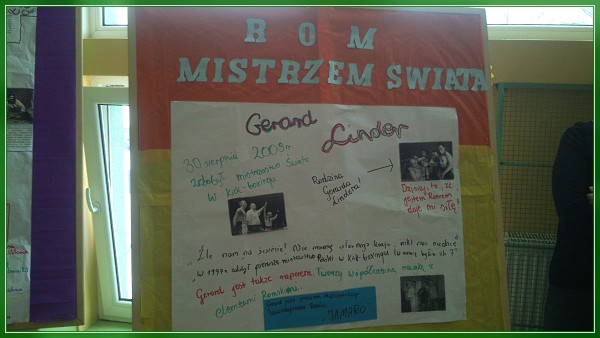 ROM
MISTRZEM ŚWIATA
Gerard
Linder
30 sierpnia 2009r.
zdobył mistrzostwo Świata
w kick-boxingu
Rodzina
Gerarda
Lindera!
Dzisiaj, to, że
jestem Romem
daje mi siłę!
„Źle nam na świecie! Nie mamy własnego kraju, nikt nas nie chce"
„W 1994r. zdobył pierwsze mistrzostwo Polski w kick-boxingu
Gerard jest także raperem. Tworzy współczesną muzykę z
elementami Romskimi.